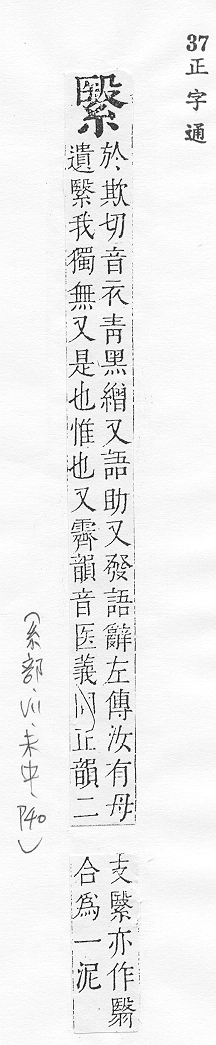 37
正字通
繄
於欺切音衣青黑繒又語助又發語辭左傳汝有母
遺繄我獨無又是也惟也又霽韻音医義同正韻二
支繄亦作翳
合爲一泥
(糸部、未中、P40)